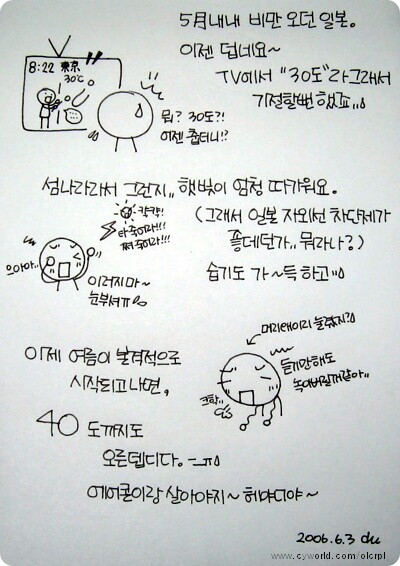 5月내내 비만 오던 일본.
이젠 덥네요~
TV에서 "30도"라 그래서
기절할뻔 했죠..
8:22 東京
30℃
뭐? 30도?!
이젠 춥더니!?
섬나라라서 그런지,, 햇빛이 엄청 따가워요.
(그래서 일본 자외선 차단제가
좋데던가.. 뭐라나?)
습기도 가~득 하고
캬캬!
타죽어라!!!
쪄죽어라!!!
으아아..
이러지마~
눈부셔ㅠ
이제 여름이 본격적으로
시작되고나면,
40 도까지도
오른뎁디다. -_ㅠ
에어콘이랑 살아야지~ 헤야디야~
머리래이리 눌렸지?
듣기만해도
녹아버릴꺼같아..
크학..
2006.6.3 du
www.cyworld.com/olcrpl